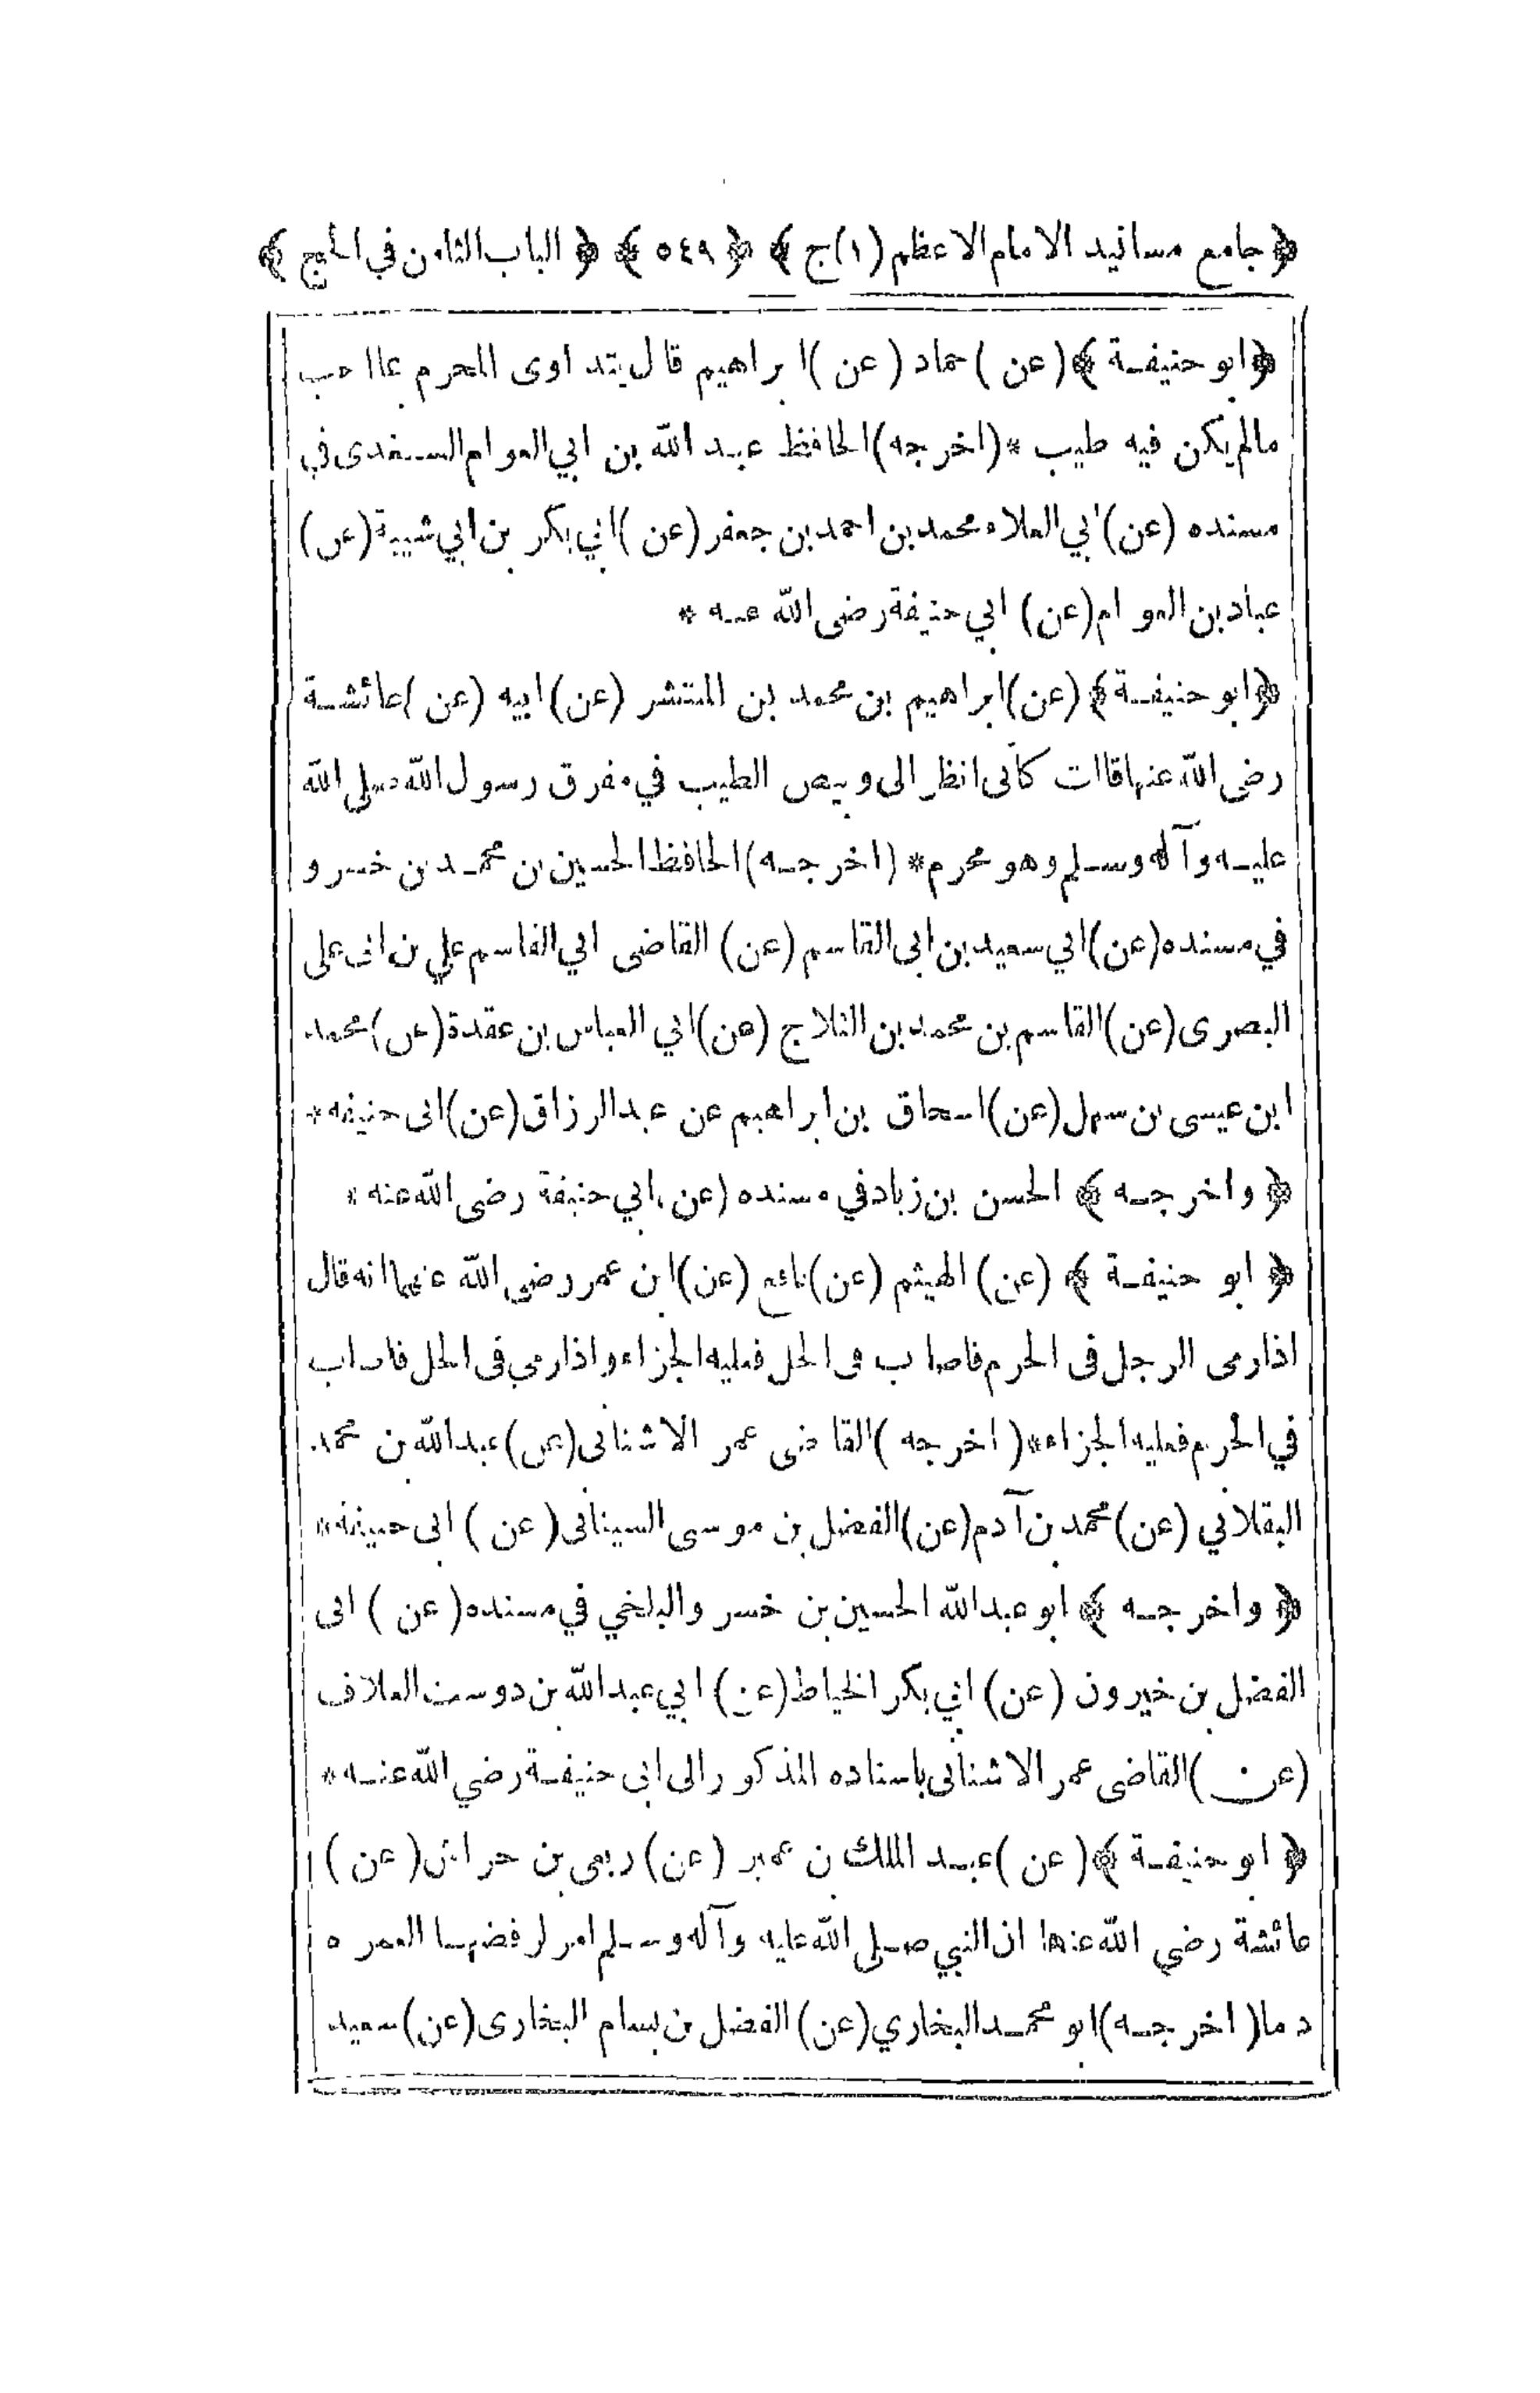 ﴿ جامع مسانيد الامام الاعظم (١) ج ﴾ ﴿ ٥٤٩ ﴾ ﴿ الباب الثامن في الحج ﴾
﴿ ابو حنيفة ﴾ (عن) حماد (عن) ابراهيم قال يتداوى المحرم بما احب
مالم يكن فيه طيب * (اخرجه) الحافظ عبد الله بن ابي العوام السغدى في
مسنده (عن) ابي العلاء محمد بن احمد بن جعفر (عن) ابي بكر بن ابي شيبة (عن)
عباد بن العوام (عن) ابي حنيفة رضى الله عنه *
﴿ ابو حنيفة ﴾ (عن) ابراهيم بن محمد بن المنتشر (عن) ابيه (عن) عائشة
رضى الله عنها قالت كأنى انظر الى وبيص الطيب في مفرق رسول الله صلى الله
عليه وآله وسلم وهو محرم * (اخرجه) الحافظ الحسين بن محمد بن خسرو
في مسنده (عن) ابي سعيد بن ابى القاسم (عن) القاضى ابي القاسم علي بن ابى على
البصرى (عن) القاسم بن محمد بن الثلاج (عن) ابي العباس بن عقدة (عن) محمد
ابن عيسى بن سهل (عن) اسحاق بن ابراهيم عن عبد الرزاق (عن) ابى حنيفه *
﴿ واخرجه ﴾ الحسن بن زياد في مسنده (عن) ابي حنيفة رضى الله عنه *
﴿ ابو حنيفة ﴾ (عن) الهيثم (عن) نافع (عن) ابن عمر رضى الله عنهما انه قال
اذا رمى الرجل فى الحرم فاصاب فى الحل فعليه الجزاء واذا رمي فى الحل فاصاب
في الحرم فعليه الجزاء * (اخرجه) القاضى عمر الاشنانى (عن) عبد الله بن محمد
البقلاني (عن) محمد بن آدم (عن) الفضل بن موسى السينانى (عن) ابى حنيفة *
﴿ واخرجه ﴾ ابو عبد الله الحسين بن خسرو البلخي في مسنده (عن) ابى
الفضل بن خيرون (عن) ابي بكر الخياط (عن) ابي عبد الله بن دوست العلاف
(عن) القاضى عمر الاشنانى باسناده المذكور الى ابى حنيفة رضي الله عنه *
﴿ ابو حنيفة ﴾ (عن) عبد الملك بن عمير (عن) ربعى بن حراش (عن)
عائشة رضي الله عنها ان النبي صلى الله عليه وآله وسلم امر لرفضها العمرة
دما (اخرجه) ابو محمد البخاري (عن) الفضل بن بسام البخارى (عن) سعيد